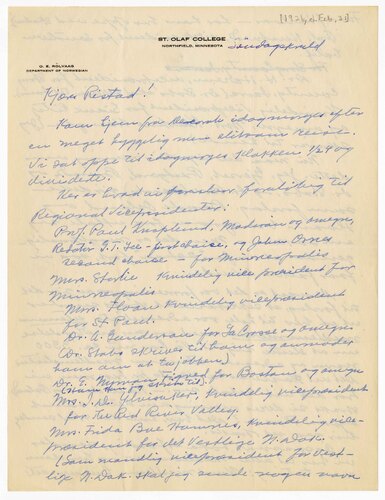 [1926, Feb. 21]
ST. OLAF COLLEGE
NORTHFIELD, MINNESOTA
Söndagskveld
O. E. ROLVAAG
DEPARTMENT OF NORWEGIAN
Kjære Ristad!
Kom hjem fra Decorah idagmorges efter
en meget hyggelig men slitsom reise.
Vi sat oppe til idagmorges klokken 1/2 4 og
dividerte.
Her er hvad vi foreslår til
Regional Vicepresidenter:
Prof. Paul Knaplund, Madison og omegn,
Rektor G. T. Lee - first choice, og John
second choice - for Minneapolis
Mrs. Storlie Kvindelig vice president for
Minneapolis
Mrs. Sloan Kvindelig vicepresident
for St Paul.
Dr. A. Gundersen for La Crosse og omegn
(Dr. Stabo skriver til ham og anmoder
ham om at ta jobben)
Dr. E. for Boston og omegn
(Ham skriver til)
Mrs. J. D. Ylvisaker, Kvindelig vicepresident
for the Red River Valley.
Mrs. Frida Bue Homnes, Kvindelig vice-
president for det vestlige N. Dak.
(Som mandlig vicepresident for Vest-
lige N. Dak. skal jeg sende nogen navn